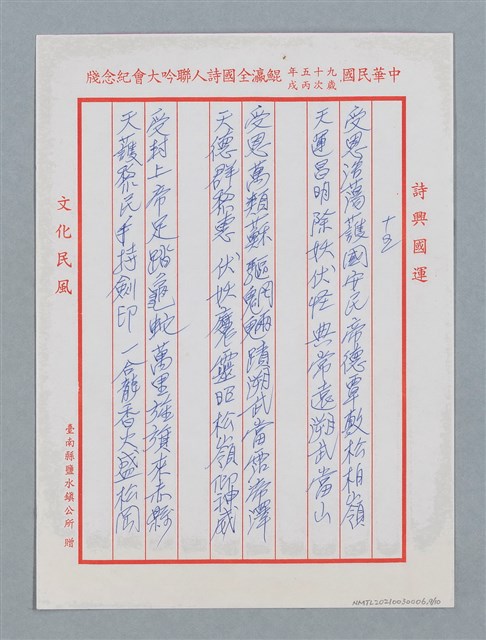 中華民國九十五年歲次丙戌鯤瀛全國詩人聯吟大會紀念牋
詩興國運
十五
受恩浩蕩護國安民帝德覃敷松柏嶺
天運昌明除妖伏怪典常遠溯武當山
受恩萬類蘇驅魍魎蹟溯武當鍾帝澤
天德群黎惠伏妖魔靈昭松嶺仰神威
受封上帝足踏龜蛇萬里旌旗來赤縣
天護黎民手持劍印一合龍香火盛松岡
文化民風
臺南縣鹽水鎮公所 贈
NMTL20210050006.9/10